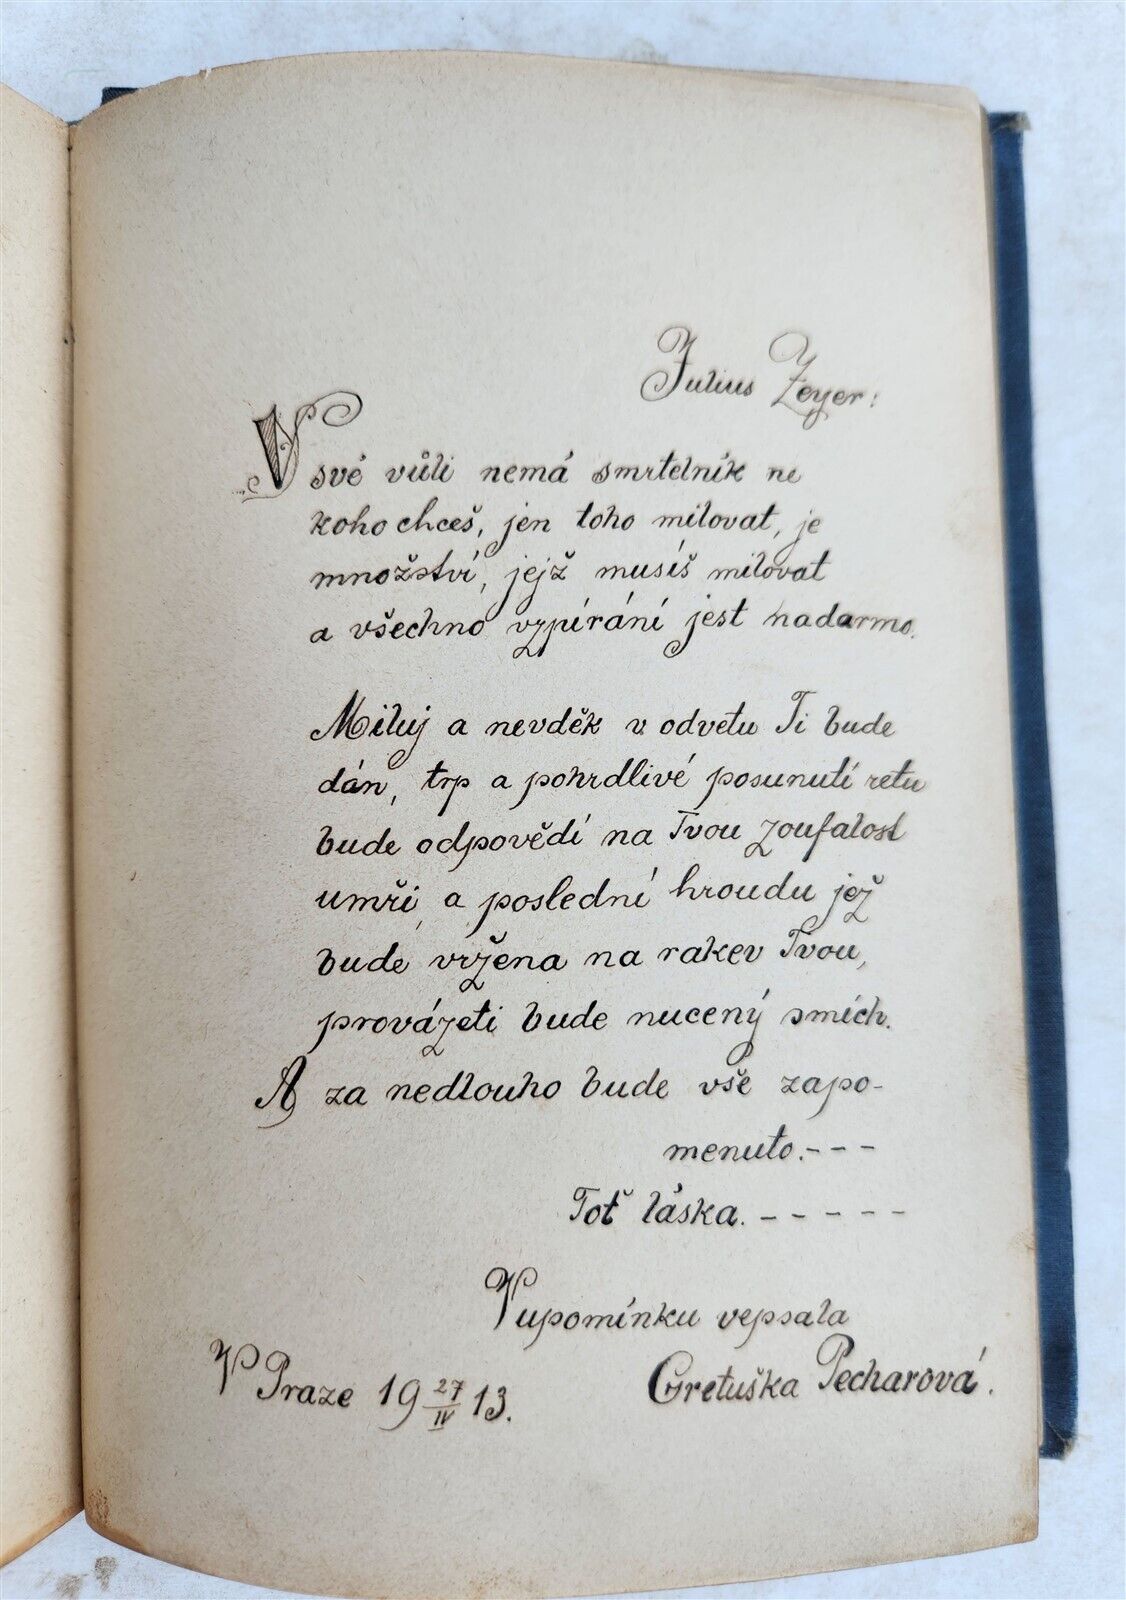 Julius Zeyer:
V své vůli nemá smrtelník ne
koho chceš, jen toho milovat, je
množství, jejž musíš milovat
a všechno vzpírání jest nadarmo.
Miluj a nevděk v odvetu Ti bude
dán, trp a pohrdlivé posunutí retu
bude odpovědí na Tvou zoufalost
umři a poslední hroudu jež
bude vržena na rakev Tvou,
provázeti bude nucený smích.
A za nedlouho bude vše zapo-
menuto.---
Toť láska.-----
Vupomínku vepsala
Gretuška Pecharová.
V Praze 19 27/IV 13.